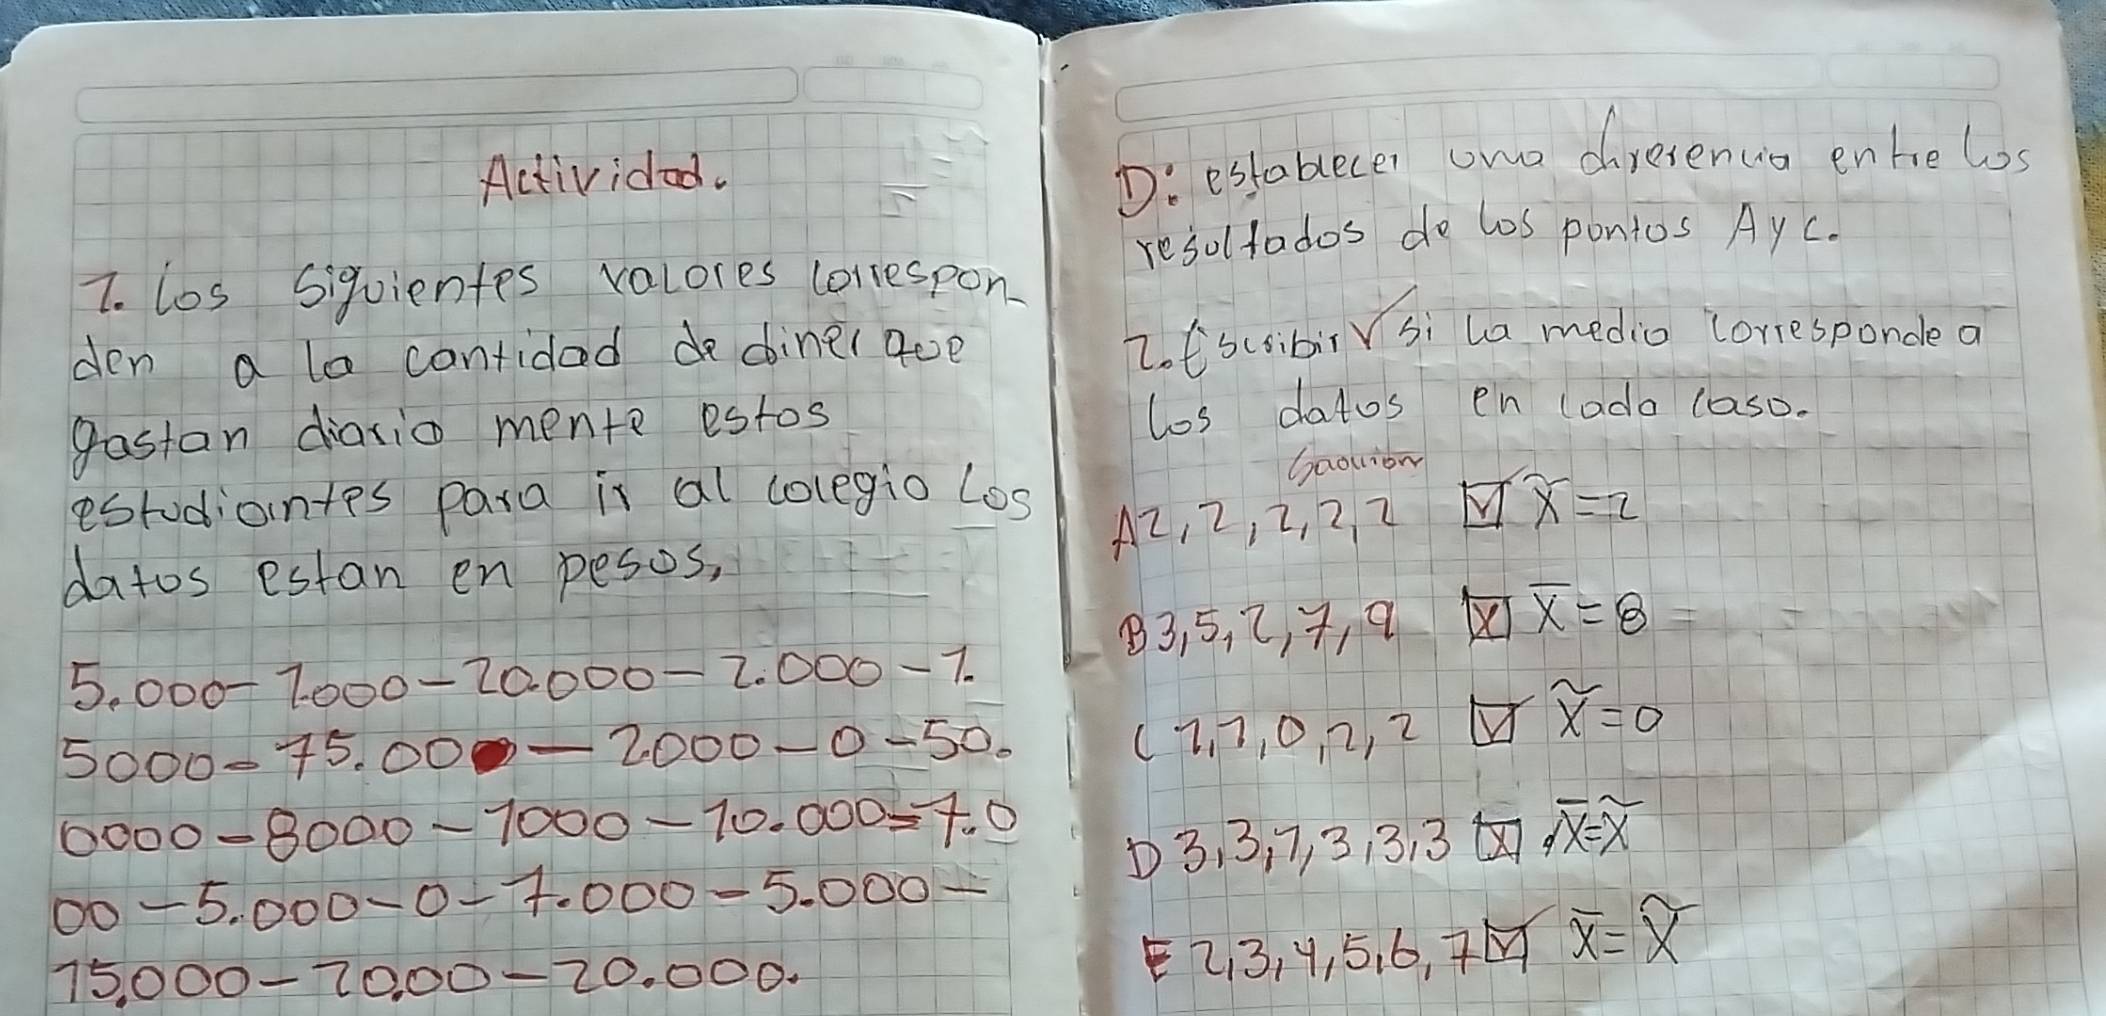 Actividad.
1. los siguientes valores correspon-
den a la cantidad de diner que
gastan diario mente estos
estudiantes para ir al colegio Los
datos estan en pesos,
5.000-1.000-20.000-2.000-1.
5000-75.000-2000-0-50.
0000-8000-1000-10.000-7.0
00-5.000-0-7.000-5.000-
15,000-2000-20.000.
D: establecer una diferencia entre los
resultados de los puntos A y C.
2. Escribir √ si la media corresponde a
los datos en cada caso.
A 2, 2, 2, 2, 2 ☑ x̃=2
B 3, 5, 2, 7, 9 ☒ x̄=8
C 1, 1, 0, 2, 2 ☑ x̃=0
D 3, 3, 7, 3, 3, 3 ☒ x̄=x̃
E 2, 3, 4, 5, 6, 7 ☑ x̄=x̃